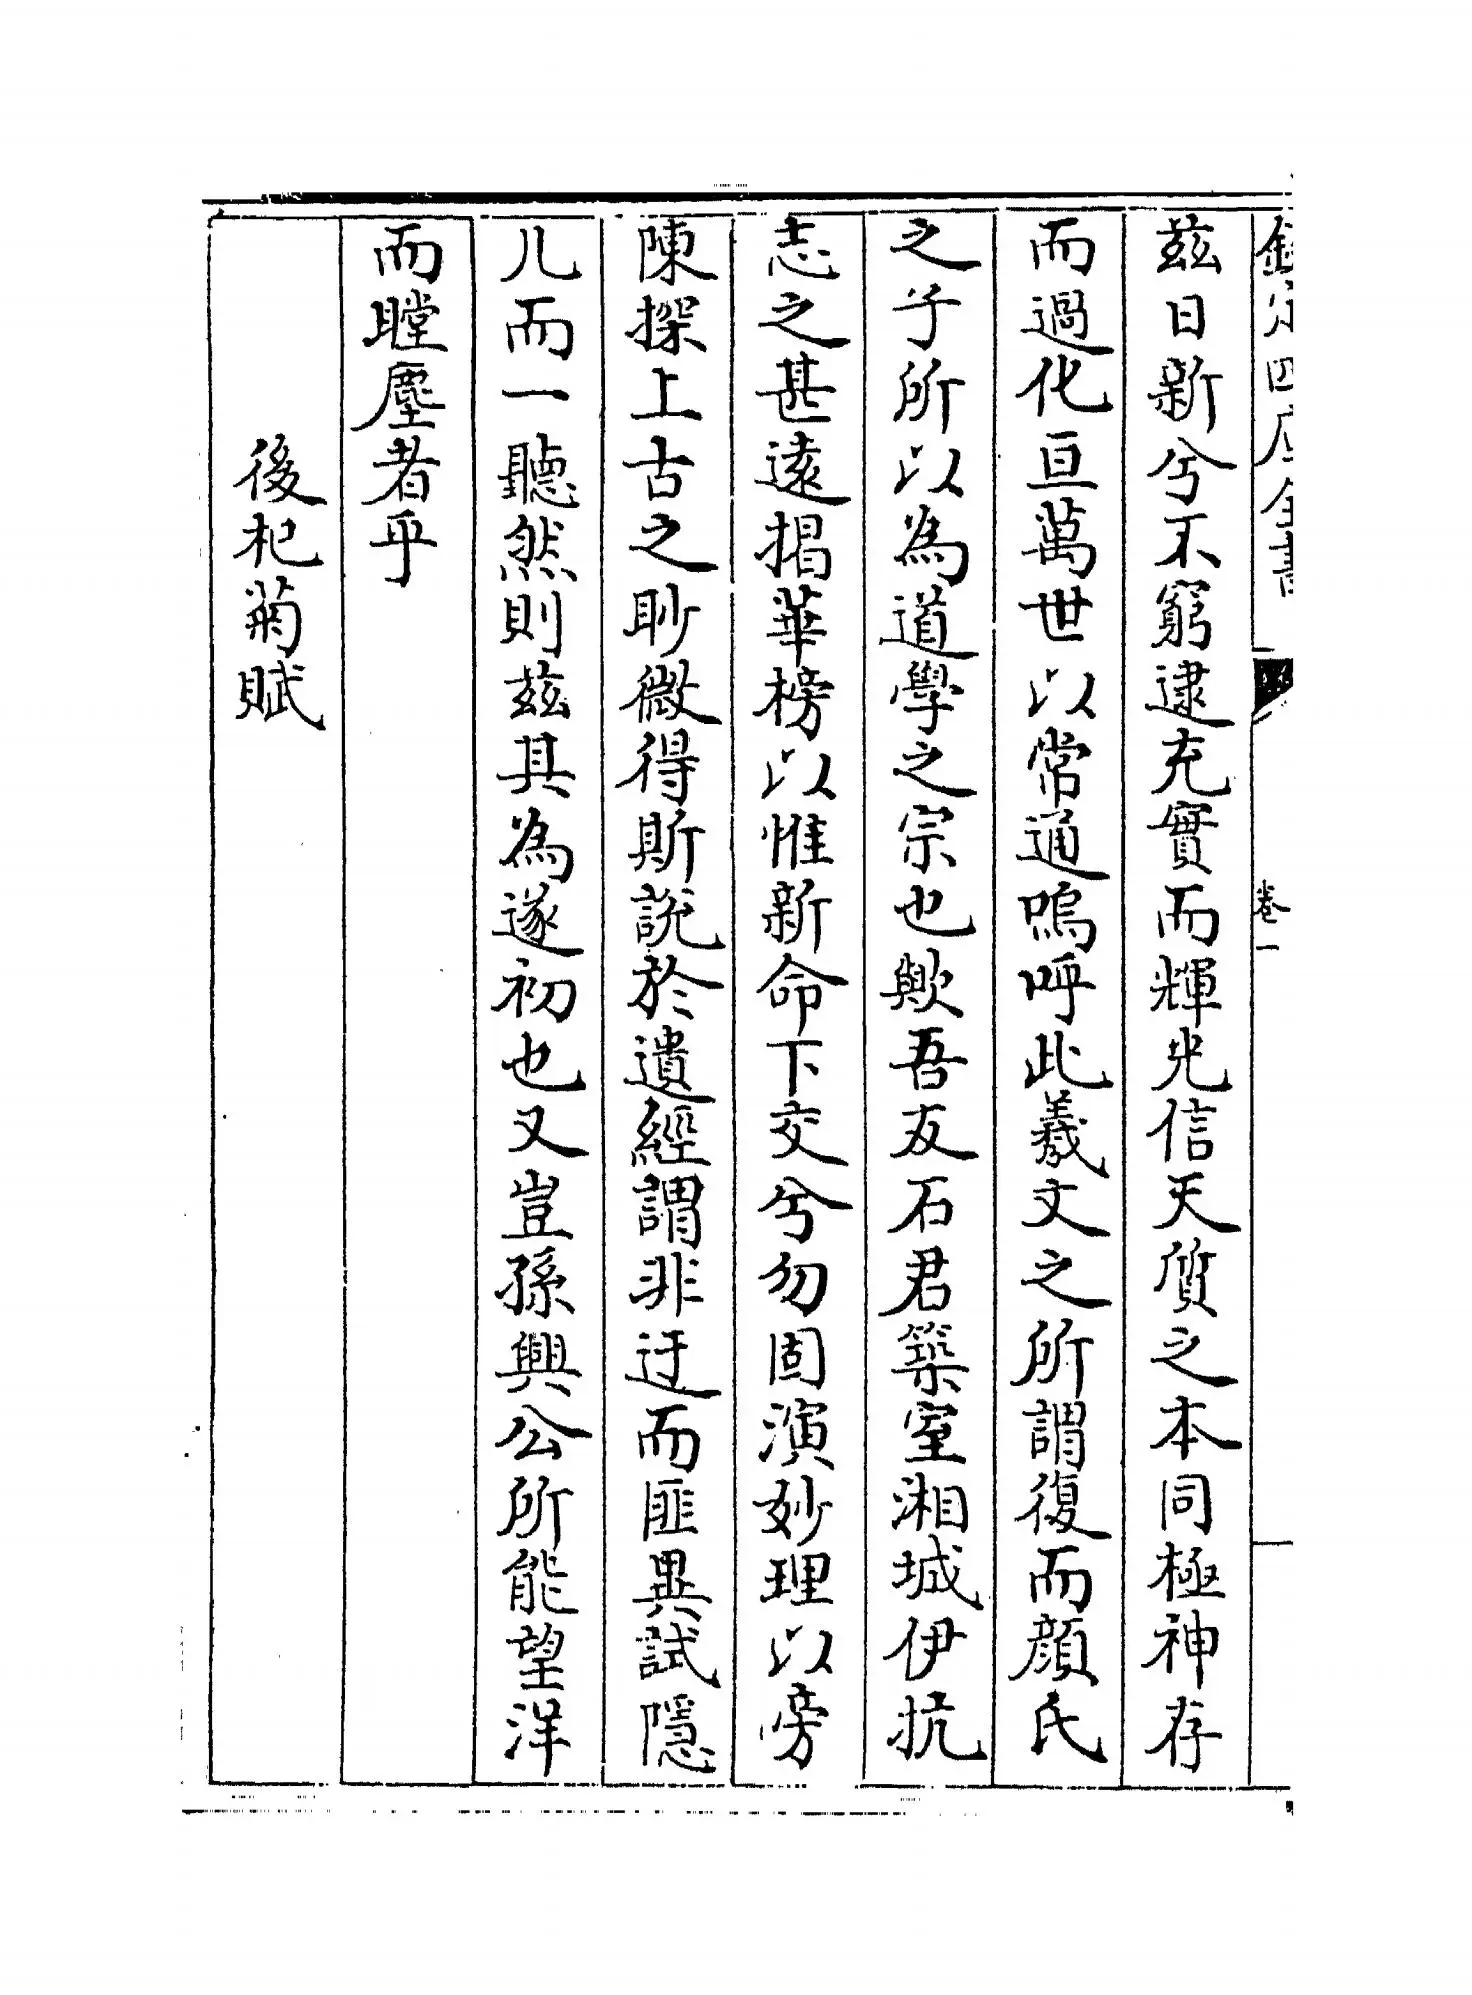 欽定四庫全書
卷一
茲日新兮不窮逮充實而輝光信天質之本同極神存
而過化亘萬世以常通嗚呼此羲文之所謂復而顔氏
之子所以為道學之宗也歟吾友石君築室湘城伊抗
志之甚遠揭華榜以惟新命下交兮勿固演妙理以旁
陳探上古之眇微得斯說於遺經謂非迂而匪異試隱
几而一聽然則茲其為遂初也又豈孫興公所能望洋
而瞠塵者乎
後杞菊賦